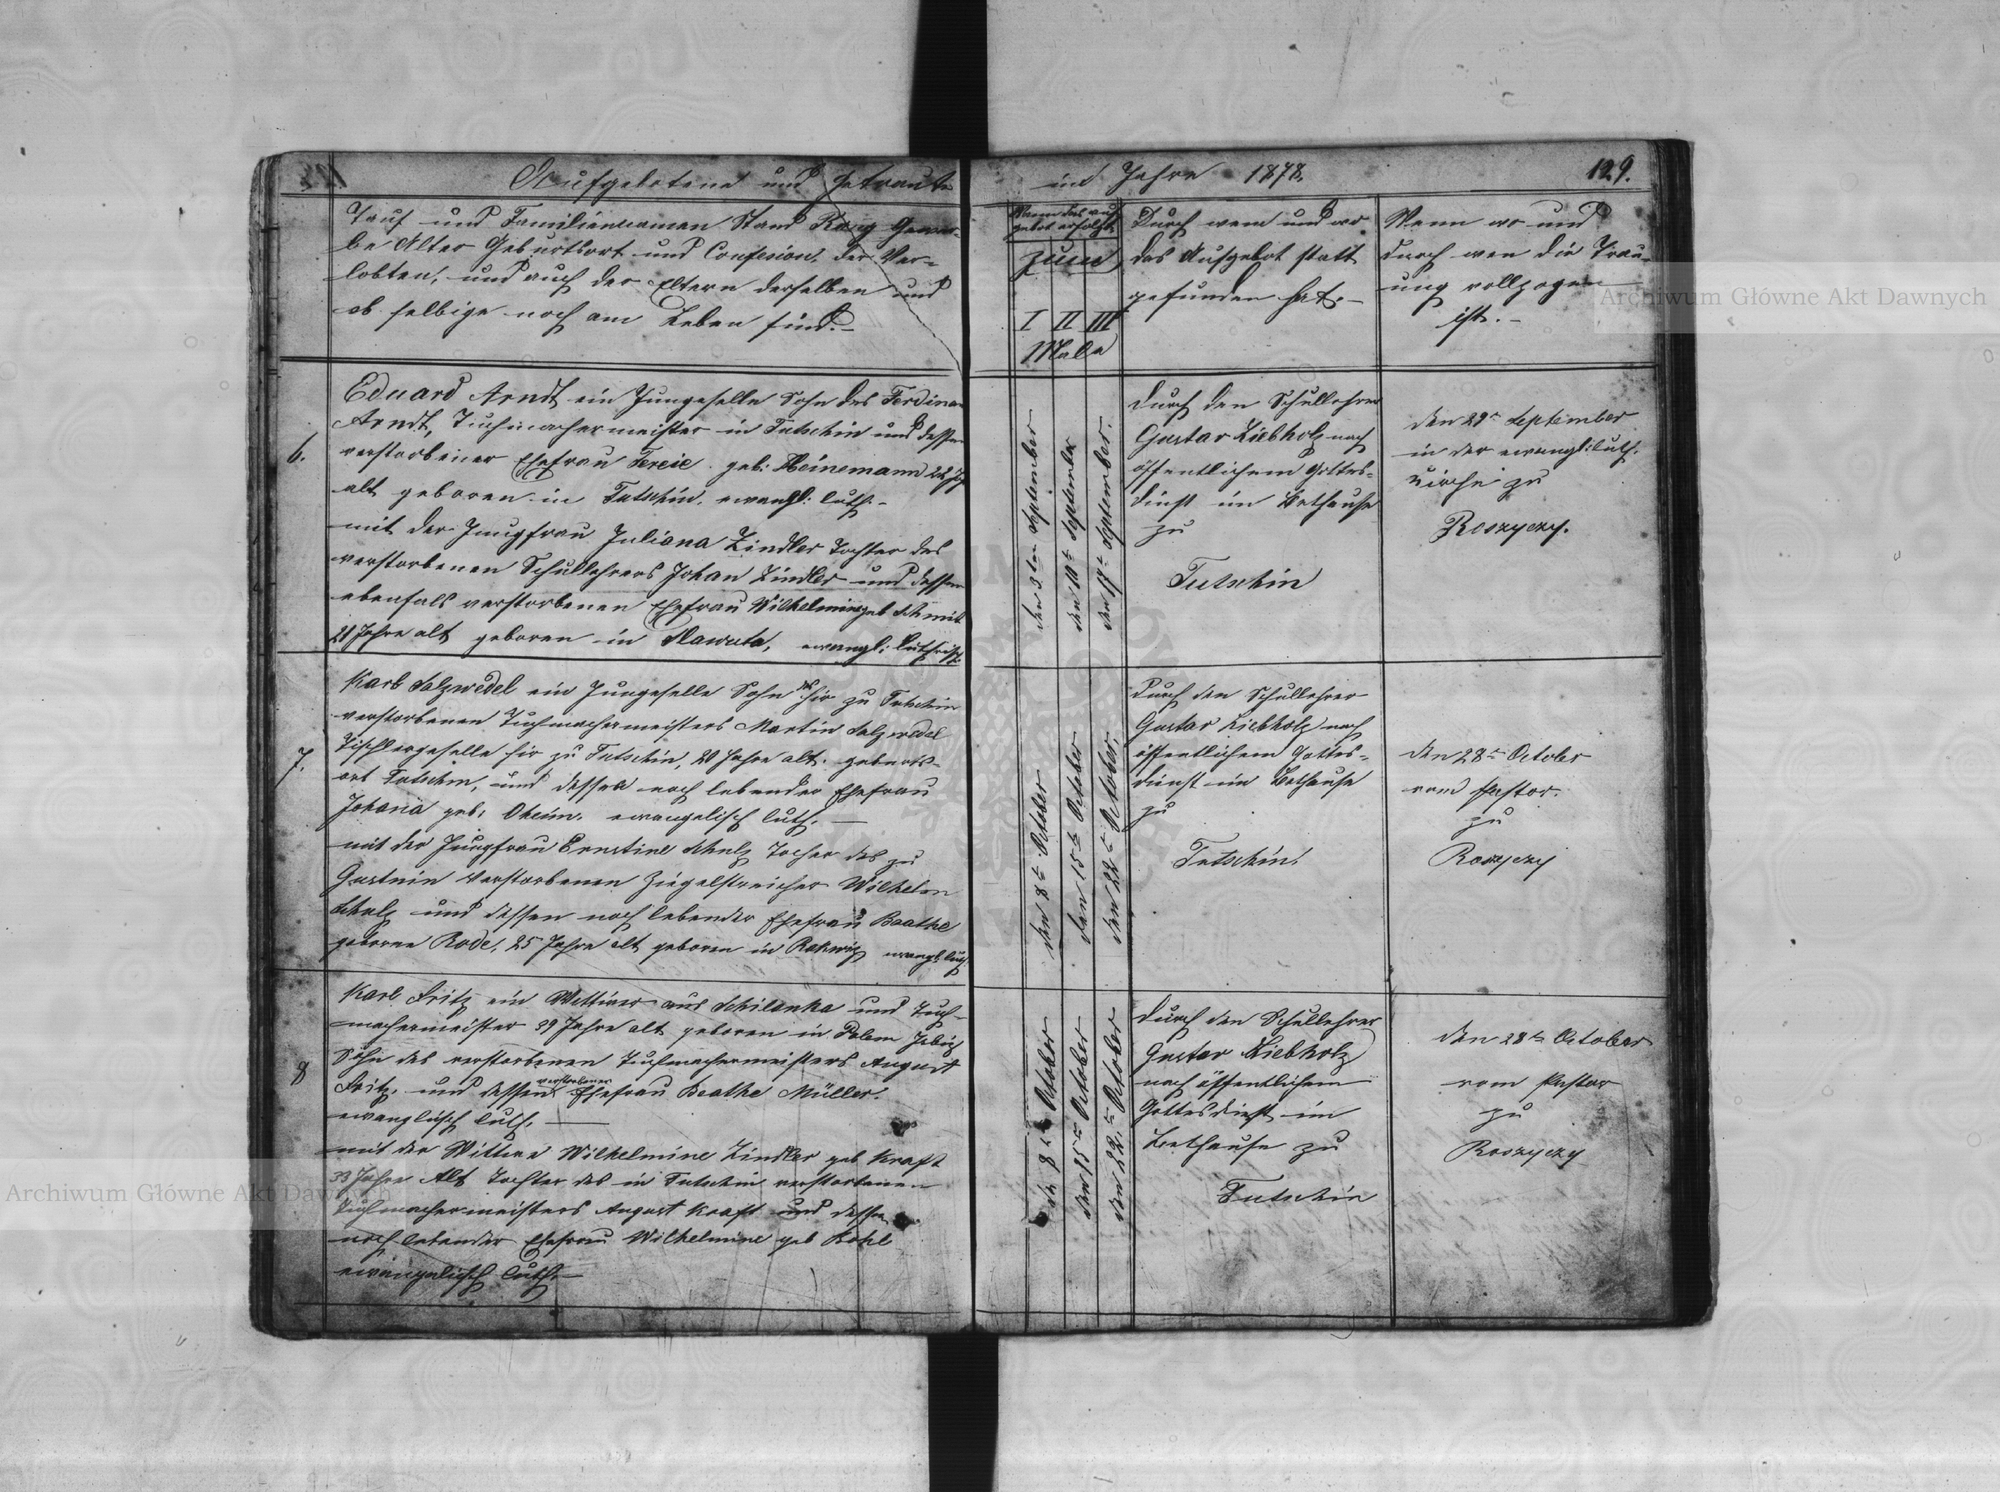 Aufgebotene und Getraute
im Jahre 1878.
129.
Tauf und Familiennamen Stand Rang Gewer-
be Alter Geburtsort und Confesion, der Ver-
lobten, und auch der Eltern derselben und
ob selbige noch am Leben sind.-
Wann das auf
gebot erfolgt
zum
I II III
Male
Durch wem und wo
das Aufgebot statt
gefunden hat.-
Wenn wo und
durch wen die Trau-
ung vollzogen
ist.-
6.
Eduard Arndt ein Jungeselle Sohn des Ferdinan
Arndt, Tuchmachermeister in Tutschin und dessen
verstorbener Ehefrau geb: Heinemann 22
alt geboren in Tutschin. ewangl: luth:-
mit der Jungfrau Juliana Zindler Tochter des
verstorbenen Schullehrers Johan Zindler und dessen
ebenfals verstorbenen Ehefrau Wilhelmine geb Schmit
21 Jahre alt geboren in Slawuta, ewangl: luthrisch
den 3ten September
den 10t September
den 17t September.
Durch den Schullehrer
Gustav Liebholz nach
öffentlichem Gottes-
dinst im Bethause
zu
Tutschin
den 29t September
in der ewangl: luth.
Kirche zu
Roszyczy.
7.
Karl Salzwedel ein Jungeselle Sohn des hir zu Tutschin
verstorbenen Tuchmachermeisters Martin Salzwedel
Tischlergeselle hir zu Tutschin, 20 Jahre alt. geburts-
ort Tutschin, und dessen noch lebender Ehefrau
Johana geb: Oheim. ewangelisch luth. —
mit der Jungfrau Ernstine Schulz Tochter des zu
verstorbenen Ziegelstreicher Wilhelm
Schulz und dessen noch lebender Ehefrau Beathe
geborne Rode, 25 Jahre alt geboren in ewangl: luth
den 8t October
den 15t October
den 22t October.
Durch den Schullehrer
Gustav Liebholz nach
öffentlichem Gottes-
dinst im Bethause
zu
Tutschin.
den 28t October
vom Pastor.
zu
Roszyczy
8
Karl Fritz ein Wittwer aus Schilanka und Tuch-
machermeister 39 Jahre alt geboren in Polen
Sohn des verstorbenen Tuchmachermeisters August
Fritz. und dessen verstorbener Ehefrau Beathe Müller.
ewanglisch luth. —
mit der Wittwe Wilhelmine Zindler geb Kraft
33 Jahre Alt Tochter des in Tutschin verstorbenen
Tuchmachermeisters August Kraft und dessen
noch lebender Ehefrau Wilhelmine geb Kohl
ewangelisch luth.-
den 8t October
den 15t October
den 22t October
Durch den Schullehrer
Gustav Liebholz
nach öffentlichem
Gottesdinst im
Bethause zu
Tutschin
den 28t October
vom Pastor
zu
Roszyczy
Archiwum Główne Akt Dawnych
Archiwum Główne Akt Dawnych